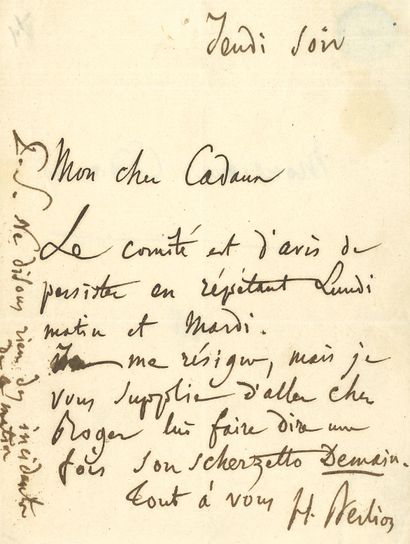 Jeudi soir
Mon cher Cadaux
Le comité est d'avis de
persister en répétant Lundi
matin et Mardi.
me résigne, mais je
vous supplie d'aller chez
Roger lui faire dire une
fois son scherzetto Demain.
Tout à vous H. Berlioz
P.S. Ne disons rien des incidents
de ce matin